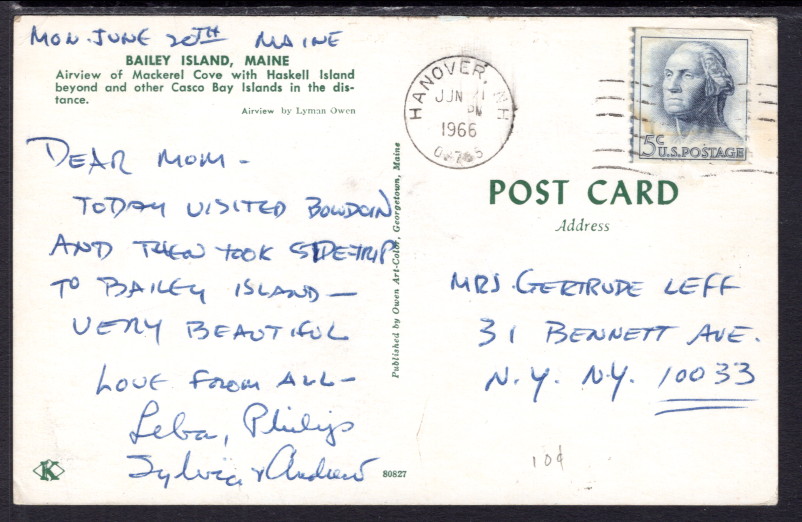 MON JUNE 20TH MAINE
BAILEY ISLAND, MAINE
Airview of Mackerel Cove with Haskell Island
beyond and other Casco Bay Islands in the dis-
tance.
Airview by Lyman Owen
DEAR MOM -
TODAY VISITED BOWDOIN
AND THEN TOOK SIDETRIP
TO BAILEY ISLAND -
VERY BEAUTIFUL
LOVE FROM ALL -
Leba, Philip,
Sylvia & Andrew
K
80827
Published by Owen Art-Color, Georgetown, Maine
HANOVER, NH
JUN 21
PM
1966
5c
U.S. POSTAGE
POST CARD
Address
MRS. GERTRUDE LEFF
31 BENNETT AVE.
N.Y. N.Y. 10033
10¢